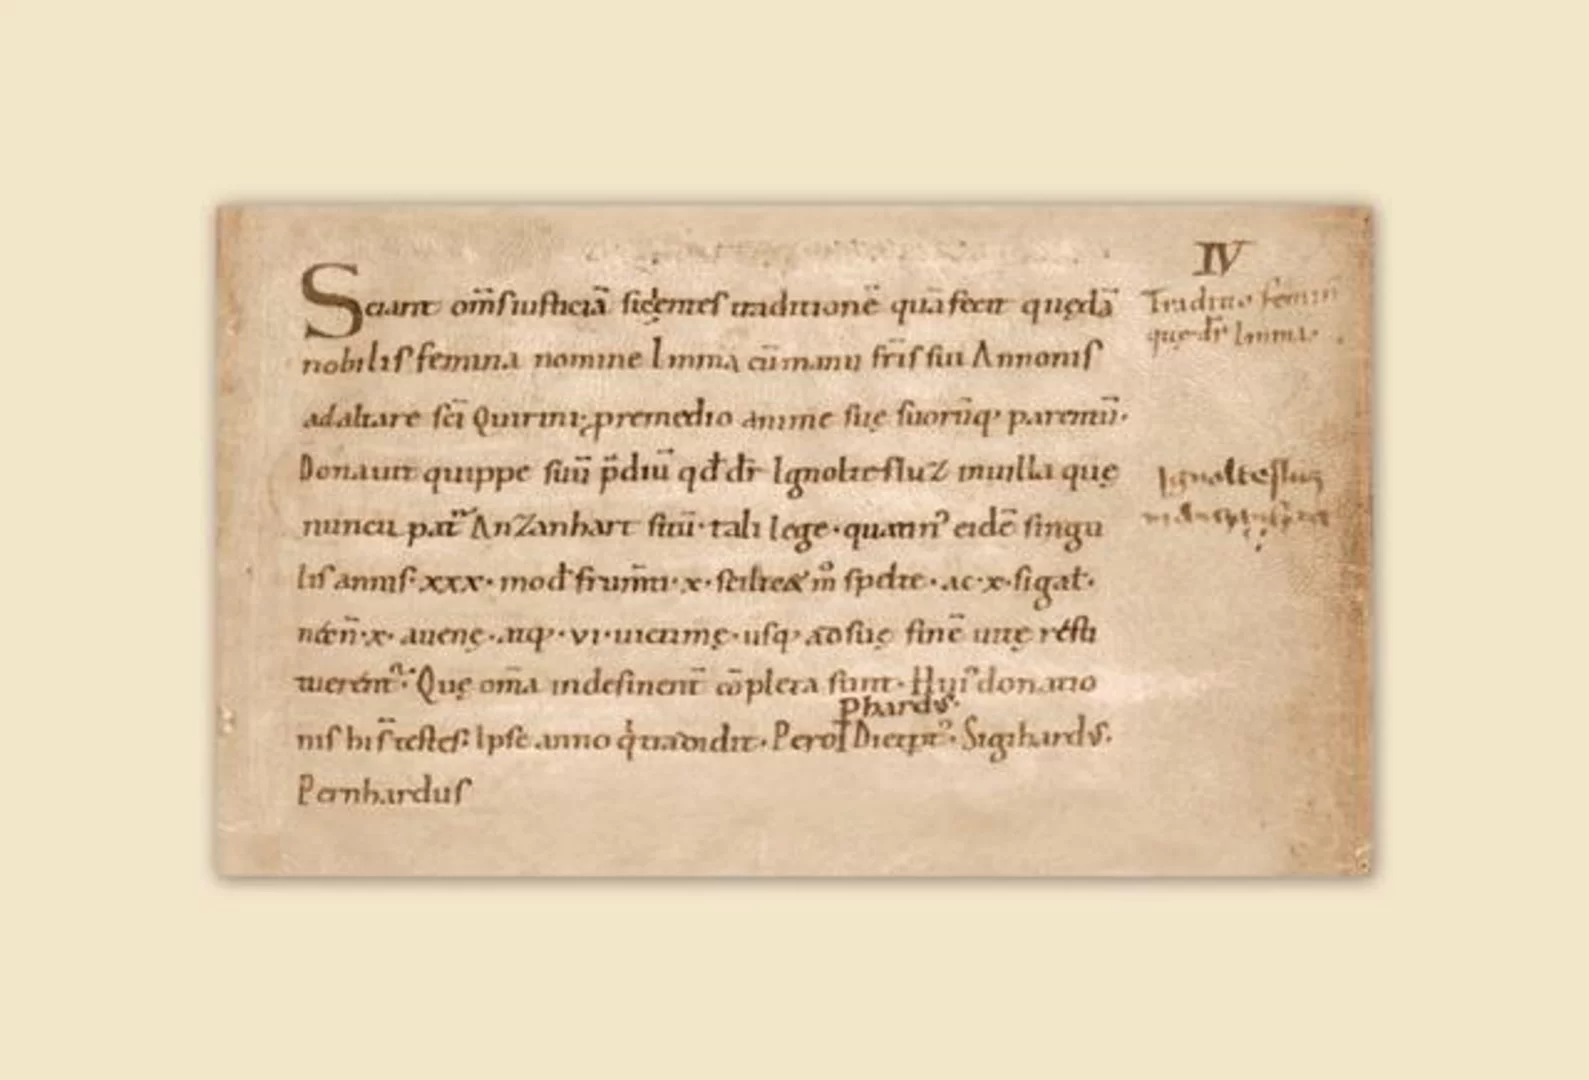 IV
Sciant om̄s iusticiā sicientes traditionē quā fecit quędā
nobilis femina nomine Imma cū manu fr̄is sui Annonis
ad altare sc̄i Quirini, p remedio anime suę suorūq; parentū.
Donauit quippe suū p̄diū qd dr̄ Ignoltesluz in uilla quę
nuncupat̄ AnZanhart situ· tali lege· quatin' eidē singu
lis annis· xxx· mod frum̄ti· x· scilic& m̊ spelte· ac· x· sigat·
necn̄· x· auenę· atq;· vi· uicimę· usq; ad suę finē uitę resti
tuerent̄· Quę om̄a indesinent̄ cōpleta sunt· Hui' donatio
Phardus·
nis hi s̄ testes· Ipse anno q̇ tradidit· Perot Dietpt'· Sigihardus·
Pernhardus
Traditio femin
quę dr̄ Imma·
Ignoltesluz